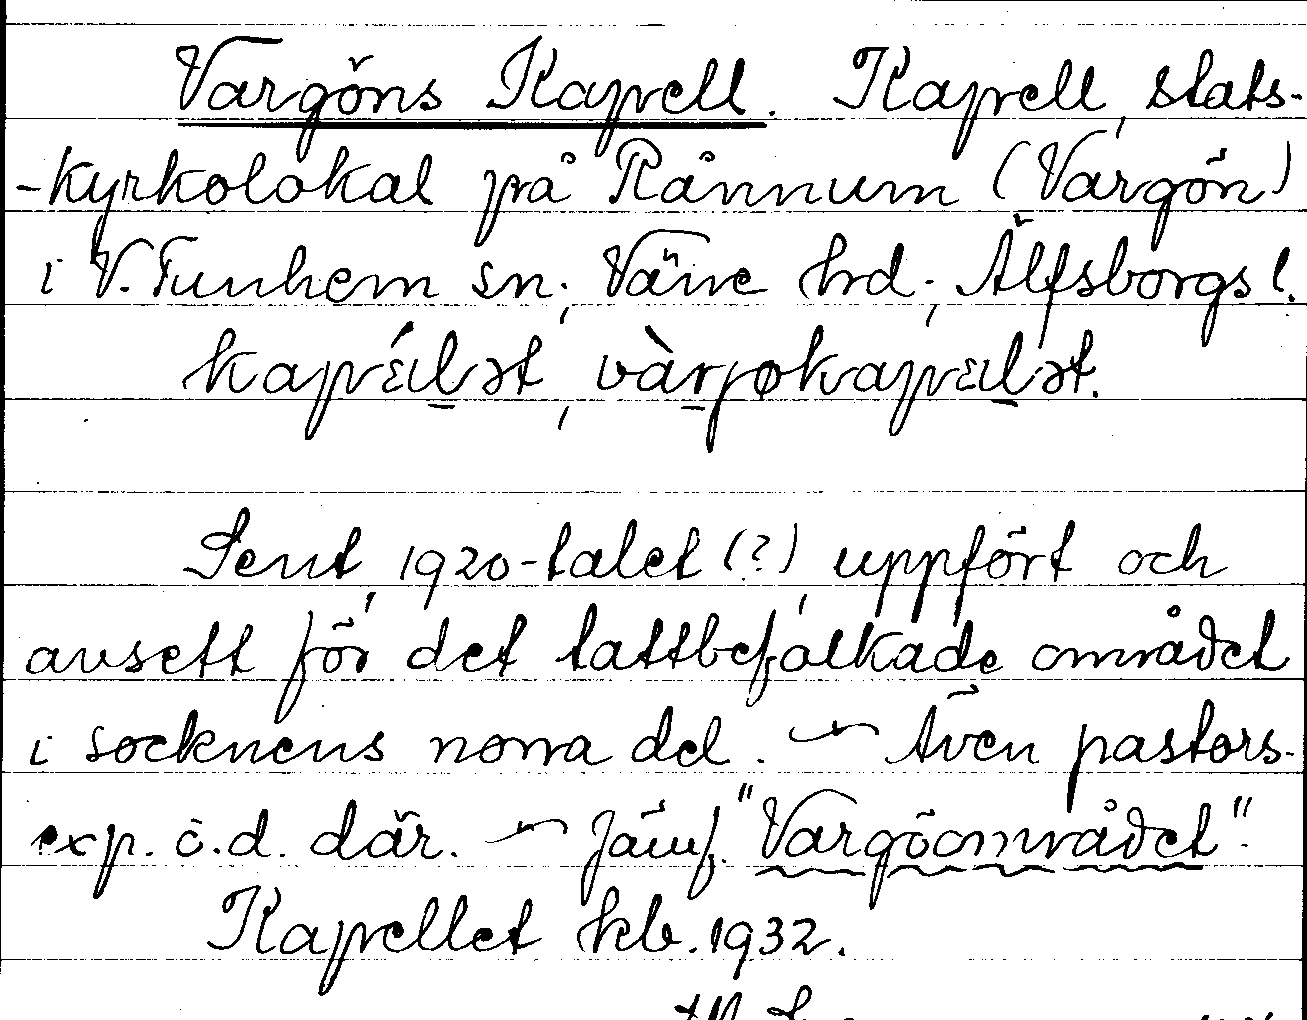 Vargöns Kapell. Kapell, stats-
-kyrkolokal på Rånnum (Vargön)
i V. Tunhem sn, Väne hrd, Älfsborgs l.
kapɛ́lət, vàrjøkapɛlət.
Sent 1920-talet (?) uppfört och
avsett för det tättbefolkade området
i socknens norra del. — Även pastors-
exp. ö.d. där. — Jämf. "Vargöområdet".
Kapellet kb. 1932.